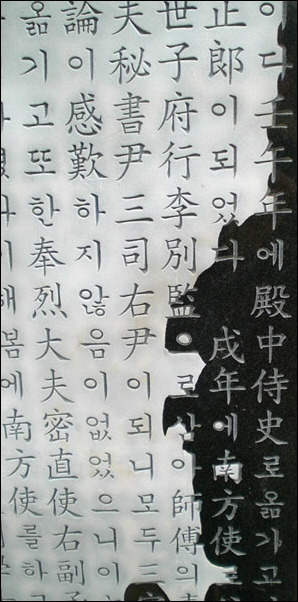 이다 壬午年에 殿中侍史로 옮기고
正郎이 되었다 戌年에 南方使로
世子府行李別監으로 삼아 師傅의
夫秘書尹三司右尹이 되니 모두 三
論이 感歎하지 않음이 없었으니 이
옮기고 또한 奉烈大夫密直使右副
해 봄에 南方使를 하